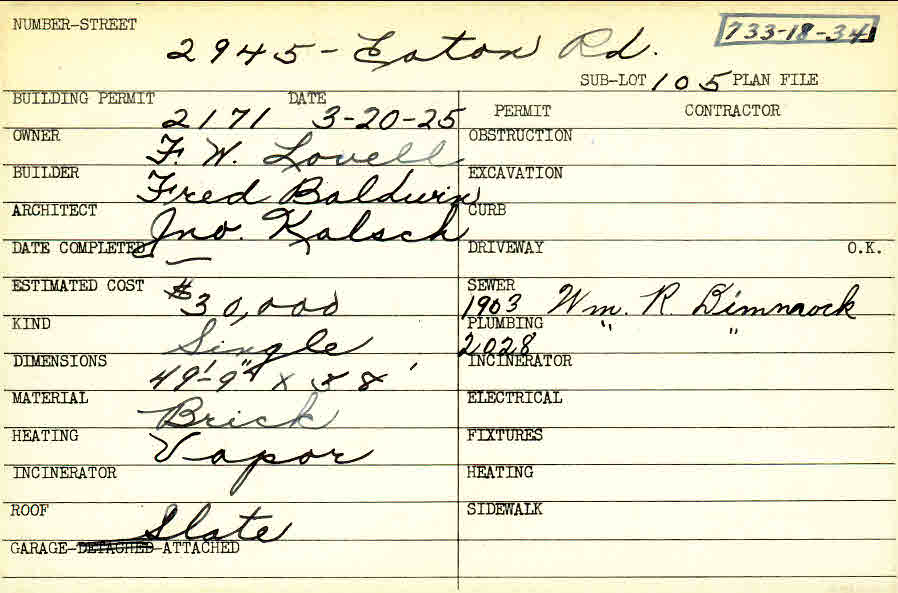 NUMBER-STREET
2945 - Eaton Rd.
733-18-34
SUB-LOT 105 PLAN FILE
BUILDING PERMIT 2171 DATE 3-20-25
PERMIT CONTRACTOR
OWNER F. W. Lovell
OBSTRUCTION
BUILDER Fred Baldwin
EXCAVATION
ARCHITECT Jno. Kalsch
CURB
DATE COMPLETED —
DRIVEWAY O.K.
ESTIMATED COST $30,000
SEWER 1903 Wm. R. Dimmock
KIND Single
PLUMBING 2028 " "
DIMENSIONS 49'-9" x 38'
INCINERATOR
MATERIAL Brick
ELECTRICAL
HEATING Vapor
FIXTURES
INCINERATOR
HEATING
ROOF Slate
SIDEWALK
GARAGE-DETACHED-ATTACHED